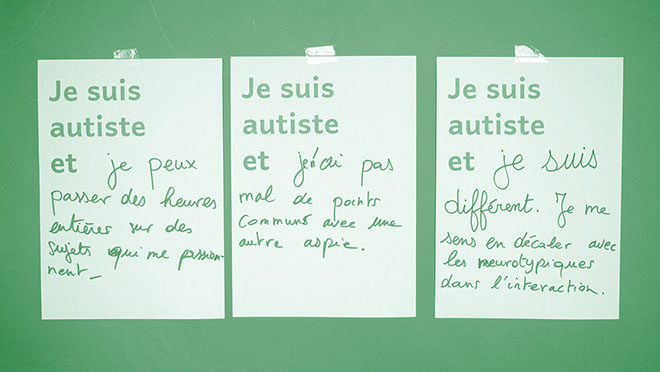 Je suis
autiste
et je peux
passer des heures
entières sur des
sujets qui me passion-
nent_
Je suis
autiste
et j'ai pas
mal de points
communs avec une
autre aspie.
Je suis
autiste
et je suis
différent. Je me
sens en décaler avec
les neurotypiques
dans l'interaction.